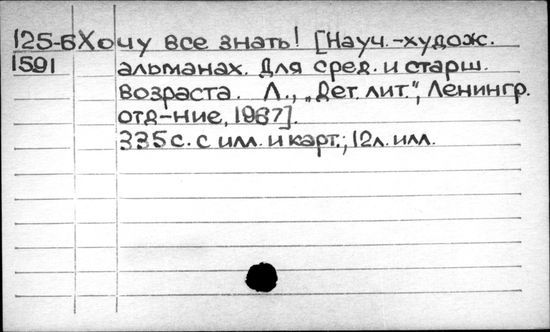 125-6 Хочу все знать! [Науч.-худож.
1591 альманах. Для сред. и старш.
возраста. Л., „Дет. лит.“, Ленингр.
отд-ние, 1967].
335 с. с илл. и карт.; 12 л. илл.